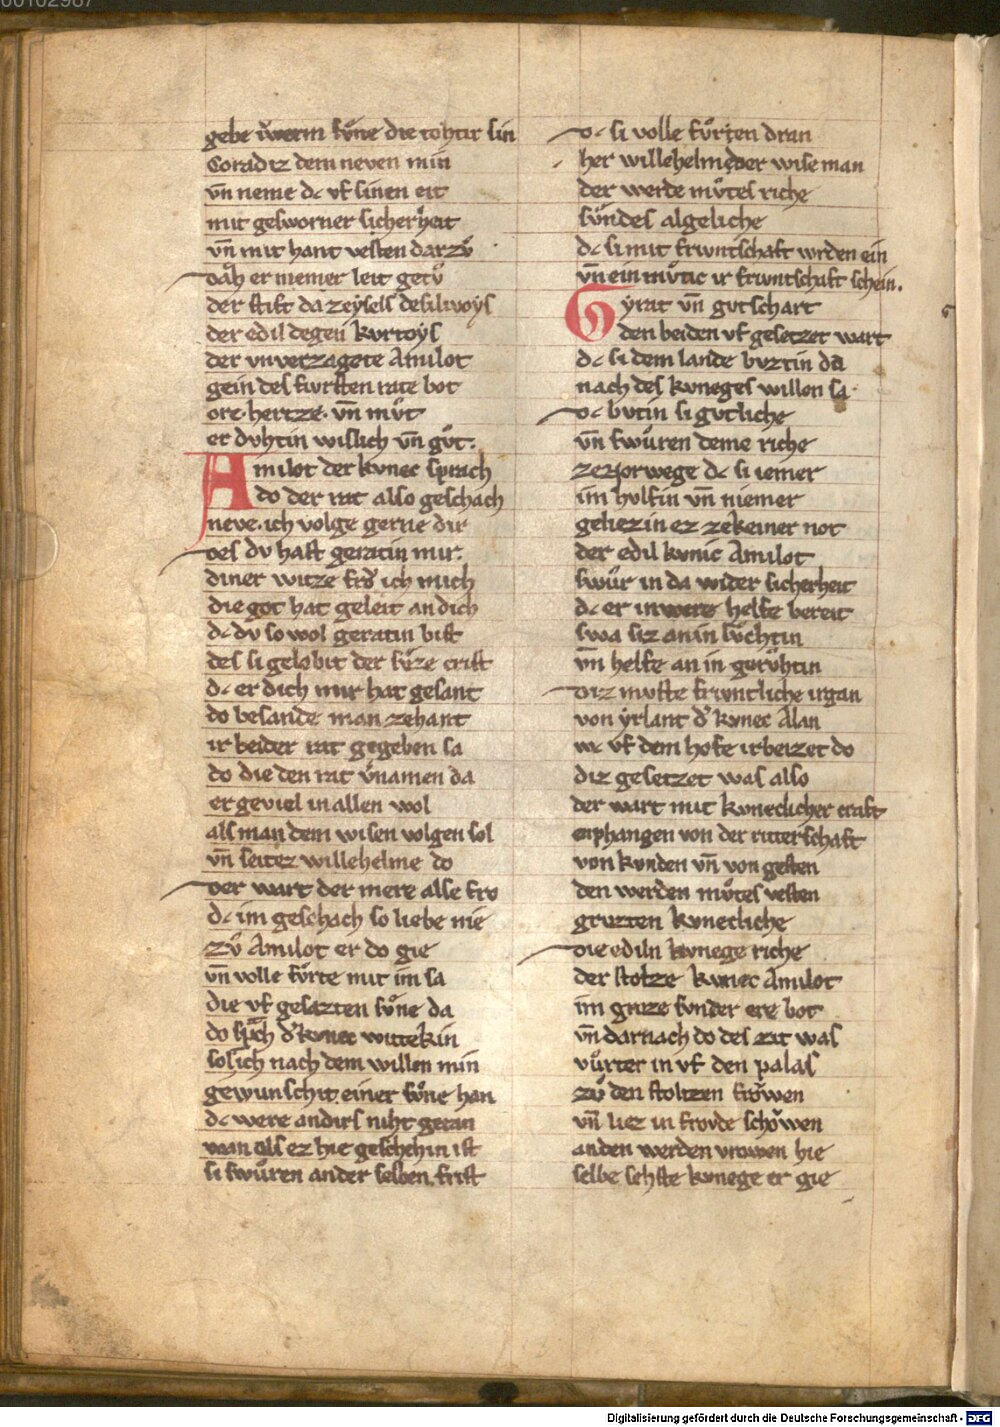 00102987
gebe uwerm suͦne die tohtir sin
Coradiz dem neven min
vn̄ neme dc vf sinen eit
mit gesworner sicherheit
vn̄ mit hant vesten darzuͦ
dc er niemer leit getuͦ
der stift da zeysels desiluoẏs
der edil degen kvrtoẏs
der vnverzagete Amilot
gein des fursten rate bot
ore hertze vn̄ muͦt
er dvhtin wislich vn̄ guͦt.
Amilot der kvnec sprach
do der rat also geschach
neve ich volge gerne dir
des dv hast geratin mir.
diner witze froͮ ich mich
die got hat geleit an dich
dc dv so wol geratin bist
des si gelobit der suͦze crist
dc er dich mir hat gesant
do besande man zehant
ir beider rat gegeben sa
do die den rat v̄namen da
er geviel in allen wol
als man dem wisen volgen sol
vn̄ seitez willehelme do
der wart der mere alse fro
dc im geschach so liebe nie
zuͦ Amilot er do gie
vn̄ volle fuͦrte mit im sa
die vf gesazten suͦne da
do sprach d' kvnec wittekin
sol ich nach dem willen min
gewunschit einer suͦne han
dc were andirs niht getan
wan als ez hie geschehin ist
si swuͦren ander selben frist
dc si volle fuͦrten dran
her willehelm der wise man
der werde muͦtes riche
suͦndes algeliche
dc si mit frivntschaft wrden ein
vn̄ ein muͦtic ir frivntschaft schein.
Gẏrat vn̄ gotschart
den beiden vf gesetzet wart
dc si dem lande bvztin da
nach des kvneges willen sa
dc butin si gvtliche
vn̄ swuͦren deme riche
dc si iemer
im hvlfin vn̄ niemer
geliezin ez zekeiner not
der edil kvnic Amilot
swuͦr in da wider sicherheit
dc er in were helfe bereit
swa siz an in suͦchtin
vn̄ helfe an in geruͦhtin
diz mvste frivntliche irgan
von ẏrlant d' kvnec Alan
wc vf dem hofe irbeizet do
diz gesetzet was also
der wart mit kvneclicher craft
enphangen von der ritterschaft
von kvnden vn̄ von gesten
den werden muͦtes vesten
grvzten kvnecliche
die ediln kvnege riche
der stolze kvnec Amilot
im grvze svnder ere bot
vn̄ darnach do des zit was
vuͦrter in vf den palas
zuͦ den stoltzen froͮwen
vn̄ liez in frovde schoͮwen
an den werden vrowen hie
selbe sehste kvnege er gie
Digitalisierung gefördert durch die Deutsche Forschungsgemeinschaft - DFG